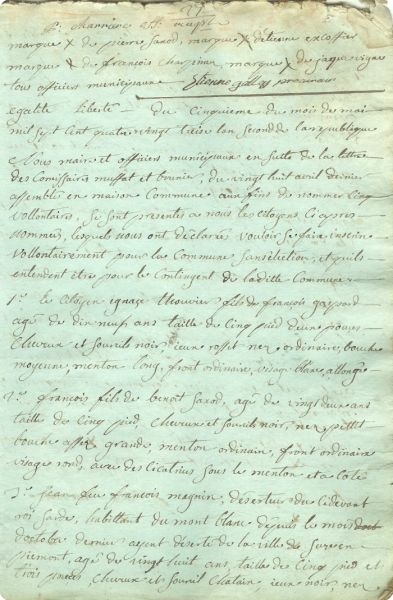 27
marque x de pierre Sarod, marque x d'étienne excoffier
marque x de françois chapinne, marque x de jaque vigne
tous officiers municipaux Etienne
egalité liberté — du Cinquieme du mois de mai
mil sept Cent quatre vingt treize lan second de la republique
Nous maire et officiers municipaux en suitte de la lettre
des Comissaires muffat et bounie, du vingt huit avril dernier
assemblé en maison Commune aux fins de nommer Cinq
volontaires, se sont presentés a nous les citoyens Ci apres
nommes, lesquels nous ont déclarés vouloir se faire inscrire
Volontairement pour la Commune sans élection, et quils
entendent être pour le Contingent de la ditte Commune
1º. le Citoyen ignace thouvier fils de françois gaspard
agé de dix neuf ans taille de Cinq pied deux pouces
Cheveux et sourcils noir, ieux rosset nez ordinaire, bouche
moyenne, menton long, front ordinaire, visage blanc, allongé
2º. françois fils de benoît Sarod, agé de vingt deux ans
taille de Cinq pied, Cheveux et sourcils noir, nez petit
bouche assez grande, menton ordinaire, front ordinaire
visage rond, avec des Cicatrices sous le menton et a Coté
3º. jean feu françois magnin, déserteur du Cidevant
roi sarde, habittant du mont blanc depuis le mois
doctobre dernier ayant déserté de la ville de Suze en
piemont, agé de vingt huit ans, taille de Cinq pied et
trois pouces, Cheveux et sourcil Chatain, ieux noir, nez